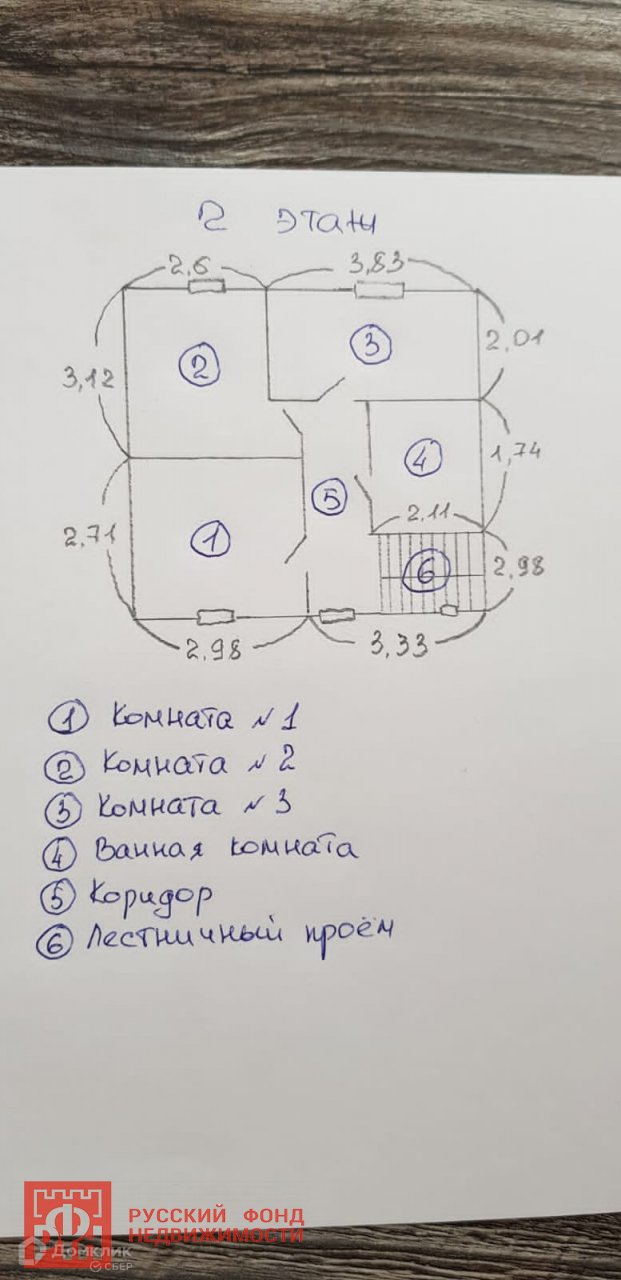 2 этаж
2,6 3,83
2
3
2.01
3,12
4
1,74
5
2,71
1
2,11
6
2,98
2,98
3,33
1 Комната №1
2 Комната №2
3 Комната №3
4 Ванная комната
5 Коридор
6 Лестничный проём
РУССКИЙ ФОНД
НЕДВИЖИМОСТИ
Домклик
СБЕР